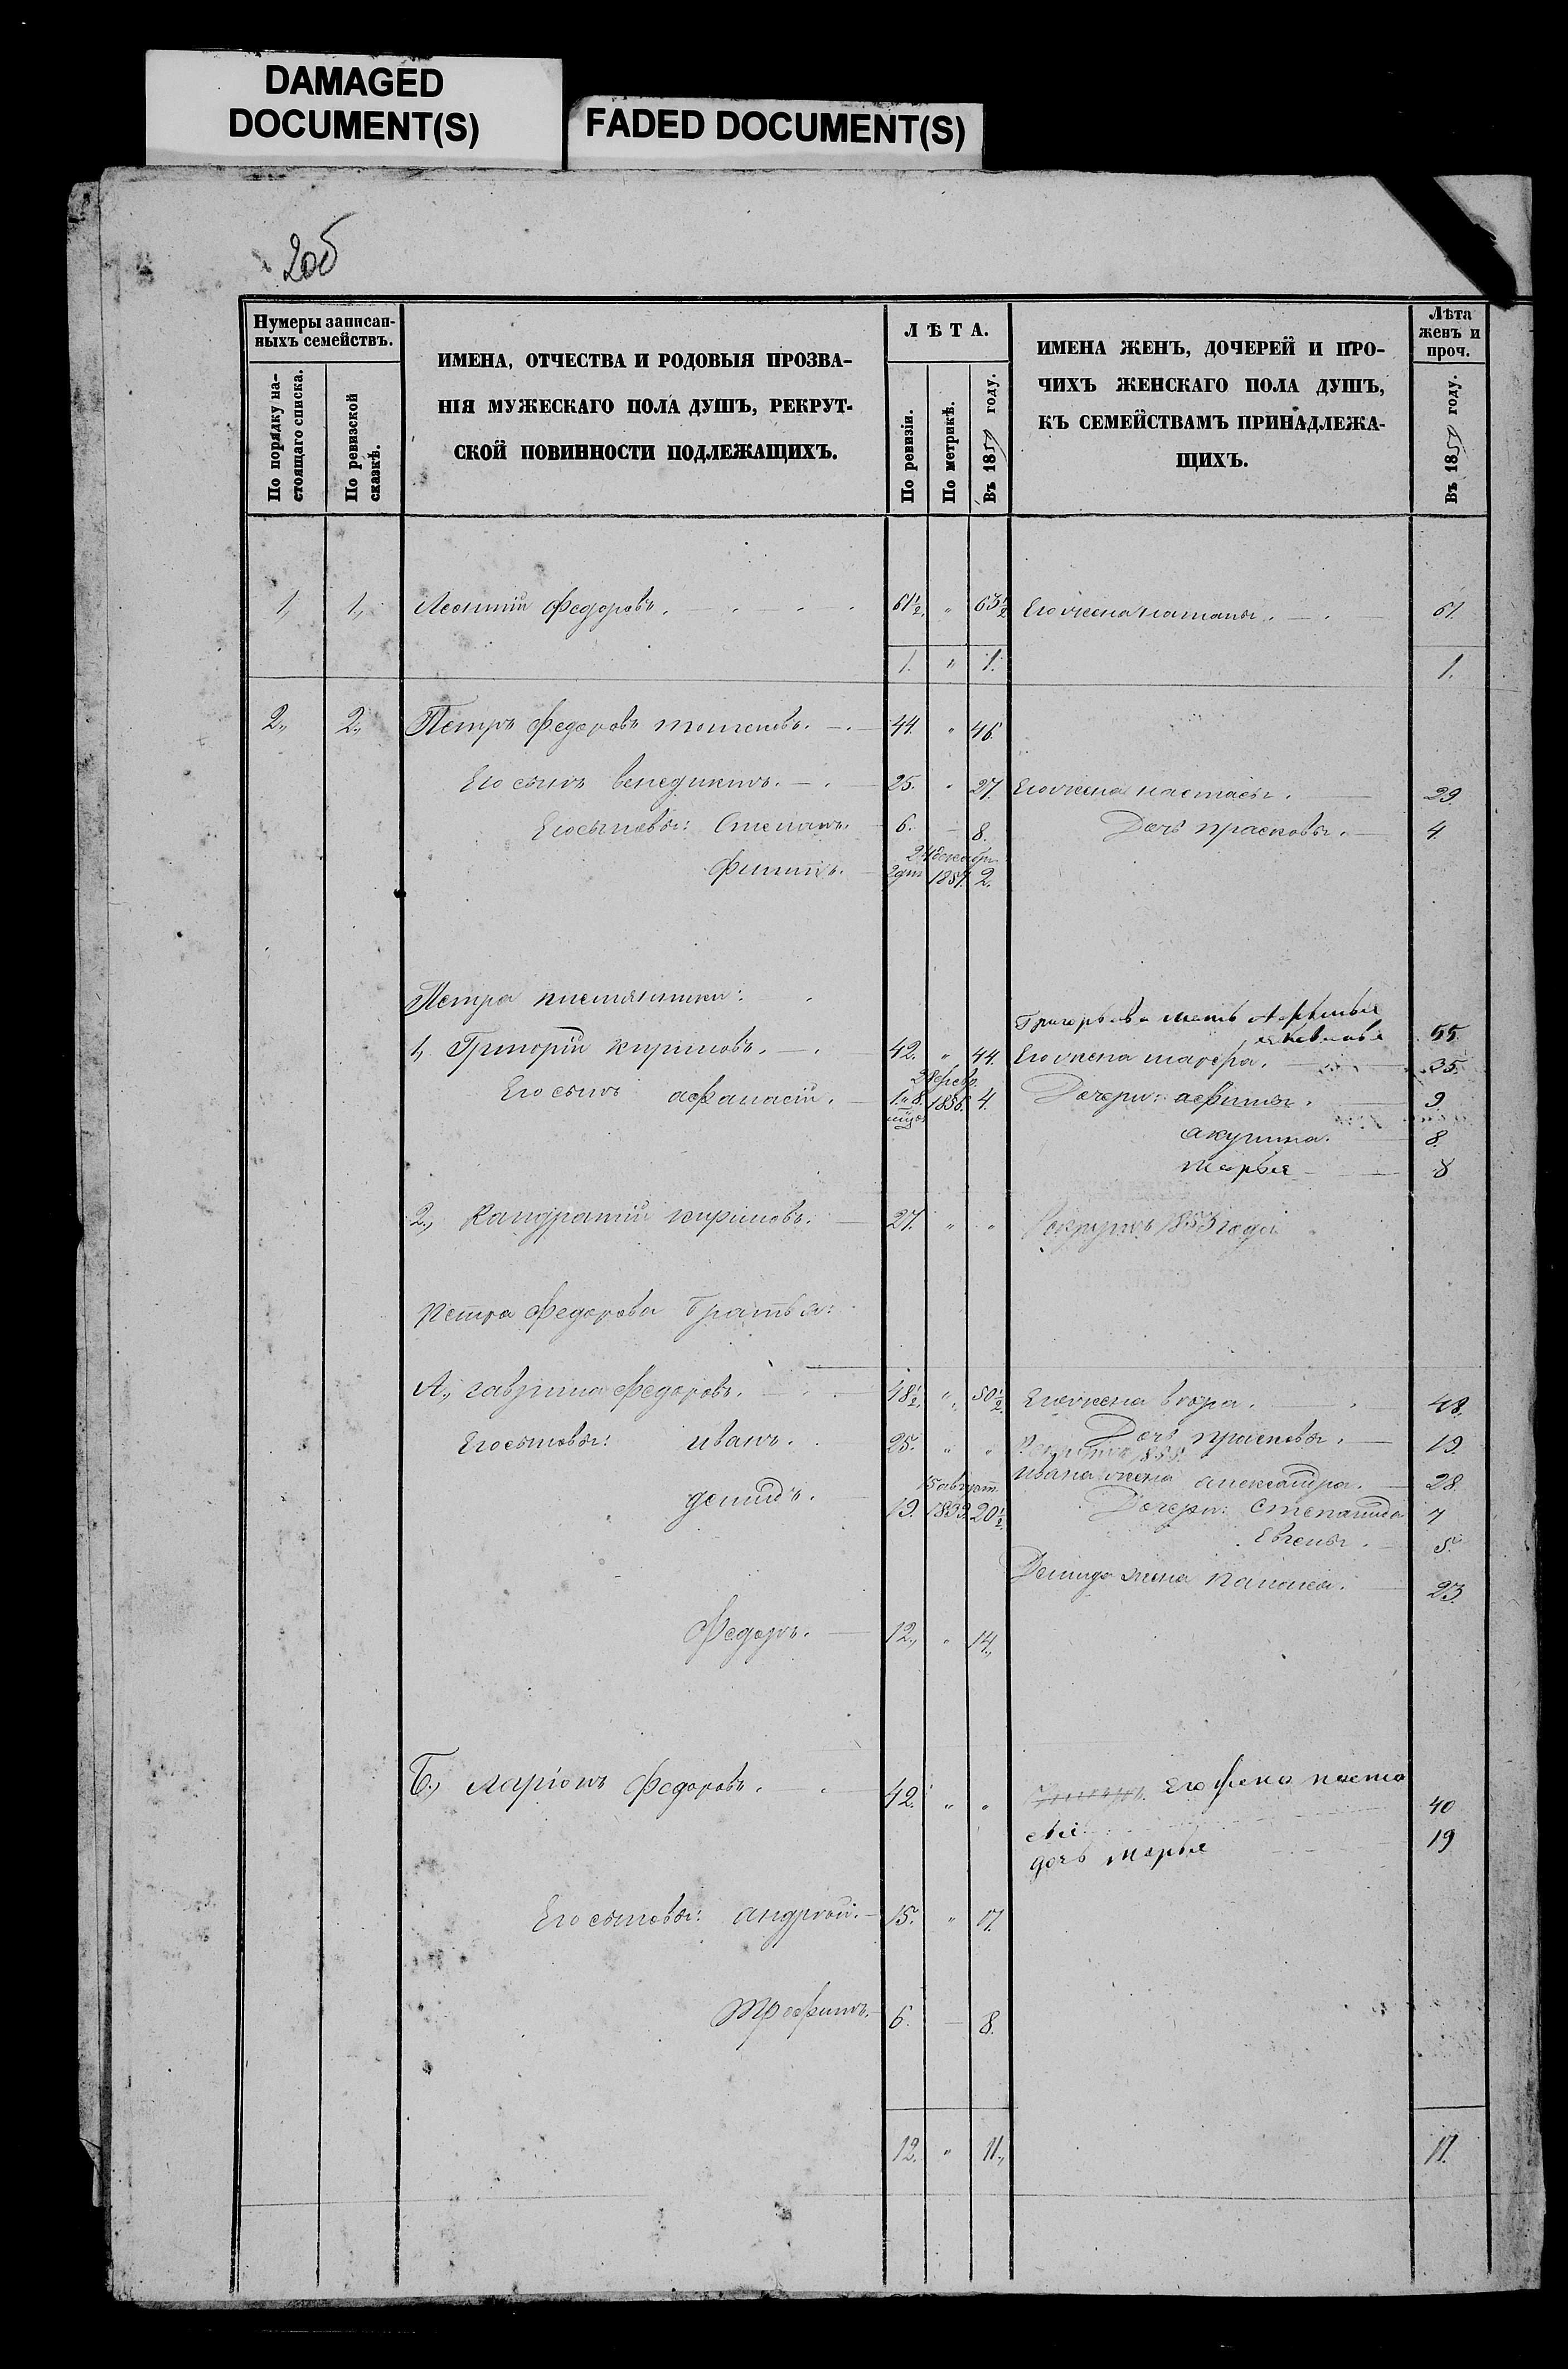 DAMAGED
DOCUMENT(S)
FADED DOCUMENT(S)
Нумеры записан-
ныхъ семействъ.
По порядку на-
стоящаго списка.
По ревизской
сказкѣ.
ИМЕНА, ОТЧЕСТВА И РОДОВЫЯ ПРОЗВА-
НІЯ МУЖЕСКАГО ПОЛА ДУШЪ, РЕКРУТ-
СКОЙ ПОВИННОСТИ ПОДЛЕЖАЩИХЪ.
ЛѢТА.
По ревизіи.
По метрикѣ.
Въ 185 году.
ИМЕНА ЖЕНЪ, ДОЧЕРЕЙ И ПРО-
ЧИХЪ ЖЕНСКАГО ПОЛА ДУШЪ,
КЪ СЕМЕЙСТВАМЪ ПРИНАДЛЕЖА-
ЩИХЪ.
Лѣта
женъ и
проч.
Въ 185 году.
1, 1, Леонтій Федоровъ. 61½ " 63½ Его жена 61.
1. " 1. 1.
2,, 2,, Петръ Федоровъ 44. " 46.
Его сынъ Венедиктъ. 25. " 27. Его жена настасья. 29.
Его сыновья: Степанъ. 6. 8. Дочь прасковья. 4.
24 декабря
1857. 2.
Петра племянники:
Григорьева мать
55.
1, Григорій Кириловъ. 42. " 44. Его жена 35.
Его сынъ афанасій. 1. 8. 1856. 4. Дочери: 9.
акулина. 8.
Марья 8
2., Кандратій кириловъ. 27. " " Рекрутъ 1853 года
Петра Федорова братья:
А., гаврила Федоровъ. 48½ " 50½ Его жена 48.
Его сыновья: иванъ. 25. " " Дочь прасковья. 19.
ивана жена александра. 28.
15 август.
демидъ. 19. 1839. 20½ Дочери: Степанида 7
Евгенья. 5.
Демида жена 23.
Федоръ. 12., " 14.,
Б., ларіонъ Федоровъ. 42. " " Его жена наста
сія 40
дочь Марья 19
Его сыновья: андрей. 15. " 17.
трофимъ. 6. 8.
12. " 11., 17.